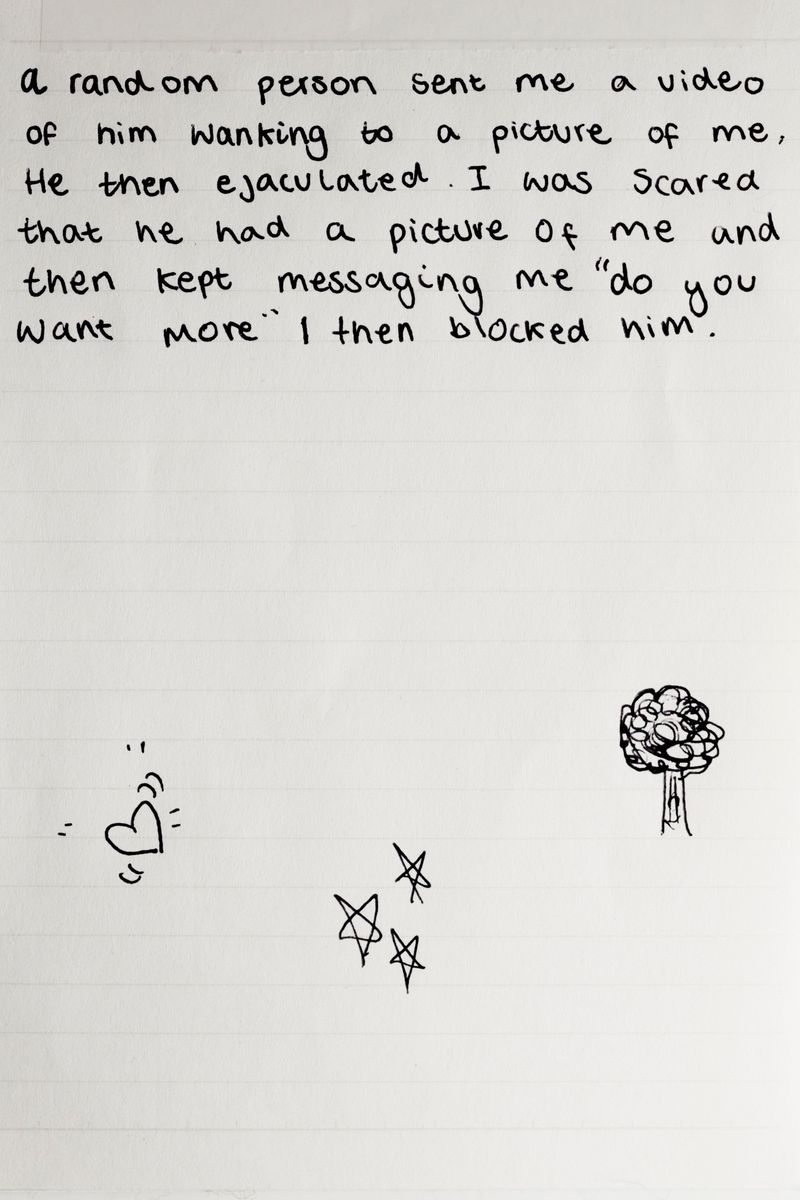 a random person sent me a video
of him wanking to a picture of me,
He then ejaculated. I was scared
that he had a picture of me and
then kept messaging me "do you
want more" I then blocked him.